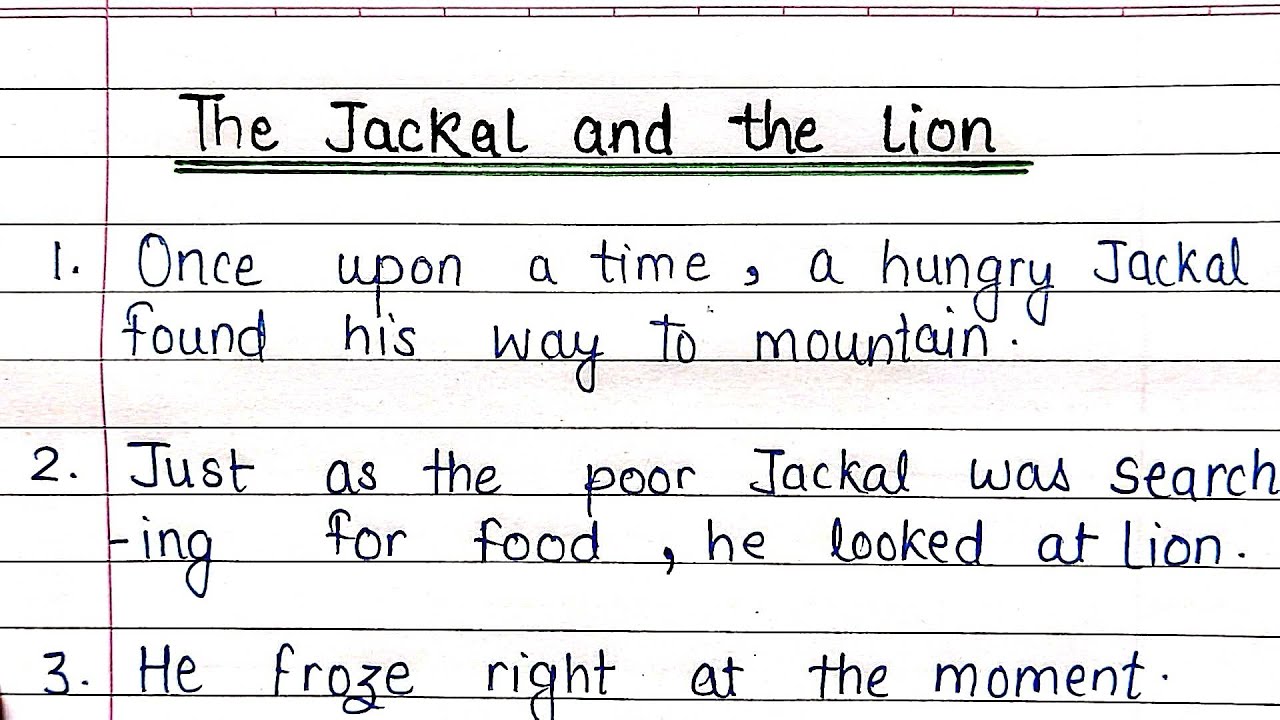 The Jackal and the Lion
1. Once upon a time, a hungry Jackal
found his way to mountain.
2. Just as the poor Jackal was search
-ing for food, he looked at Lion.
3. He froze right at the moment.